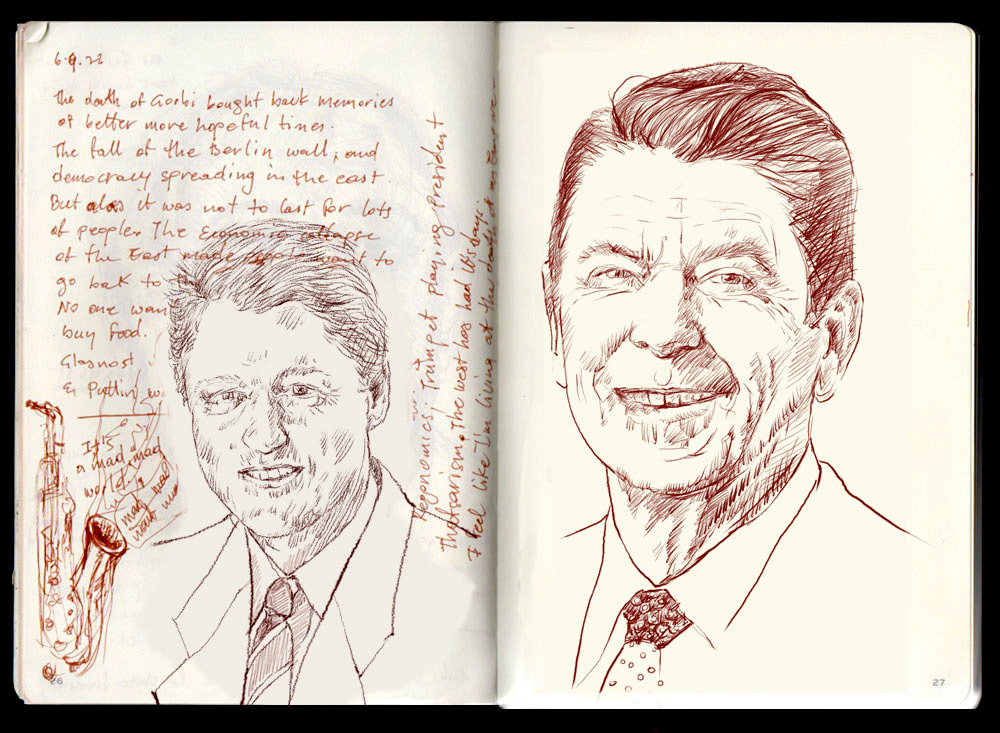 6.9.22
The death of Gorbi bought back memories
of better more hopeful times.
The fall of the Berlin wall, and
democracy spreading in the east.
But alas it was not to last for lots
of people. The Economic collapse
of the East made people want to
go back to the
No one wan
buy food.
Glasnost
& Puttin
It's
a mad, mad
world.
mad
Reganomics. Trumpet playing President
Thatcharism. The west has had its day.
I feel like I'm living at the death of an Empire.
26
27